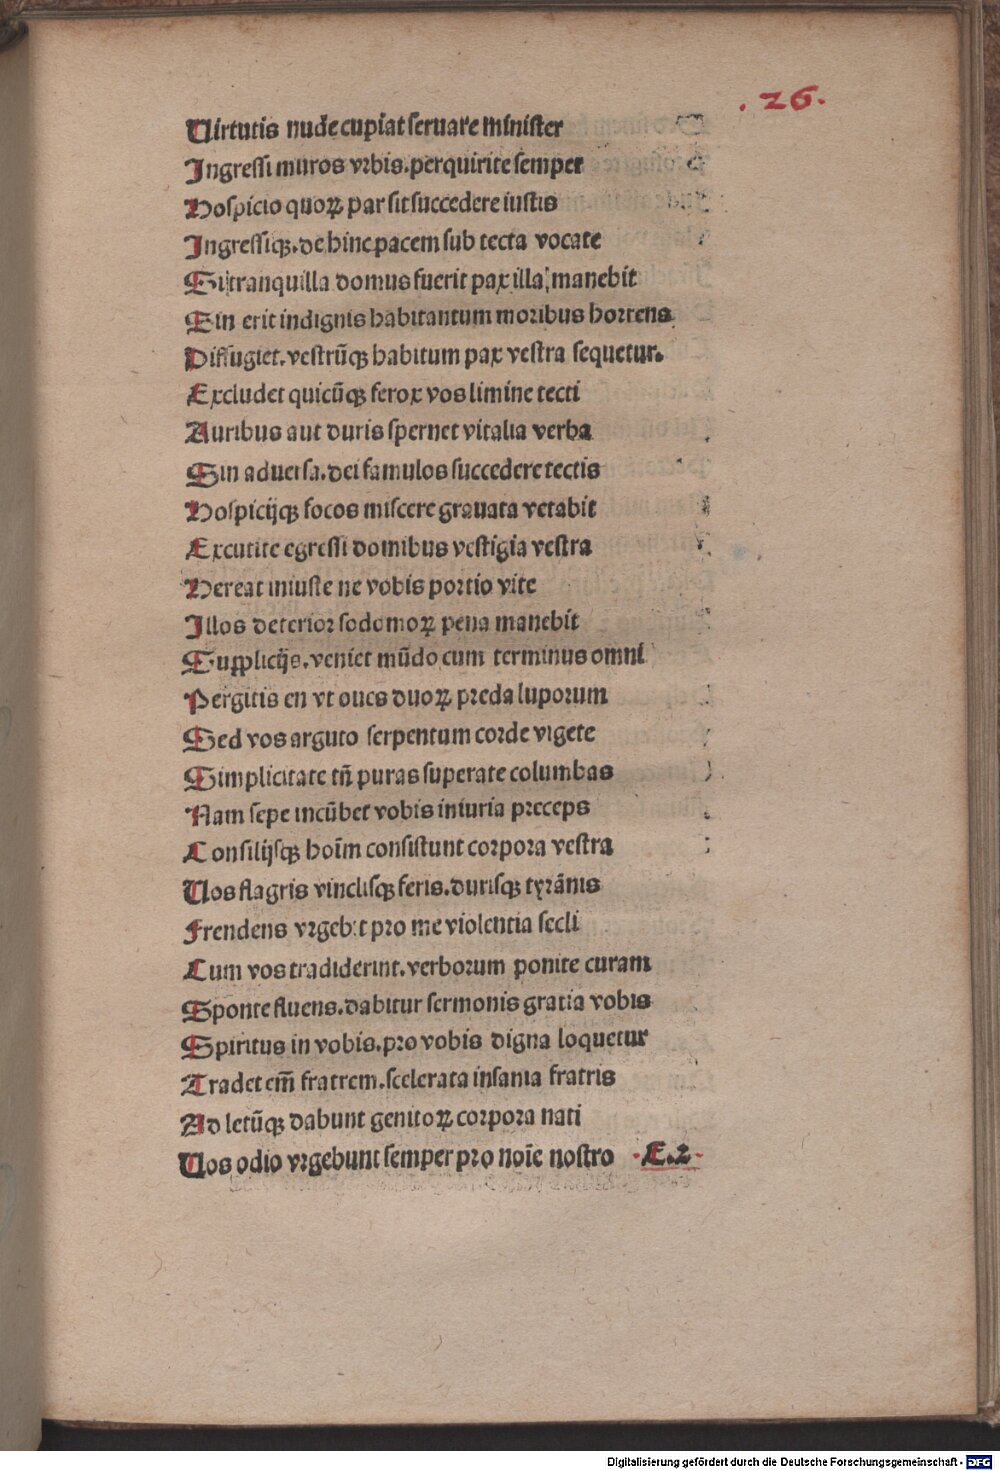 .26.
Uirtutis nude cupiat seruare minister
Ingressi muros vrbis.perquirite semper
Hospicio quoꝝ par sit succedere iustis
Ingressiqꝫ.de hinc pacem sub tecta vocate
Si tranquilla domus fuerit pax illa manebit
Sin erit indignis habitantum moribus horrens
Diffugiet.vestrūqꝫ habitum pax vestra sequetur.
Excludet quicūqꝫ ferox vos limine tecti
Auribus aut duris spernet vitalia verba
Sin aduersa.dei famulos succedere tectis
Hospicijqꝫ focos miscere grauata vetabit
Excutite egressi domibus vestigia vestra
Hereat iniuste ne vobis portio vite
Illos deterior sodomoꝝ pena manebit
Supplicijs.veniet mūdo cum terminus omni
Pergitis en vt oues duoꝝ preda luporum
Sed vos arguto serpentum corde vigete
Simplicitate tn̄ puras superate columbas
Nam sepe incūbet vobis iniuria preceps
Consilijsqꝫ hoīm consistunt corpora vestra
Uos flagris vinclisqꝫ feris.durisqꝫ tyrānis
Frendens vrgebit pro me violentia secli
Cum vos tradiderint.verborum ponite curam
Sponte fluens.dabitur sermonis gratia vobis
Spiritus in vobis.pro vobis digna loquetur
Tradet em̄ fratrem.scelerata insania fratris
Ad letūqꝫ dabunt genitoꝝ corpora nati
Uos odio vrgebunt semper pro noīe nostro E.2
Digitalisierung gefördert durch die Deutsche Forschungsgemeinschaft - DFG